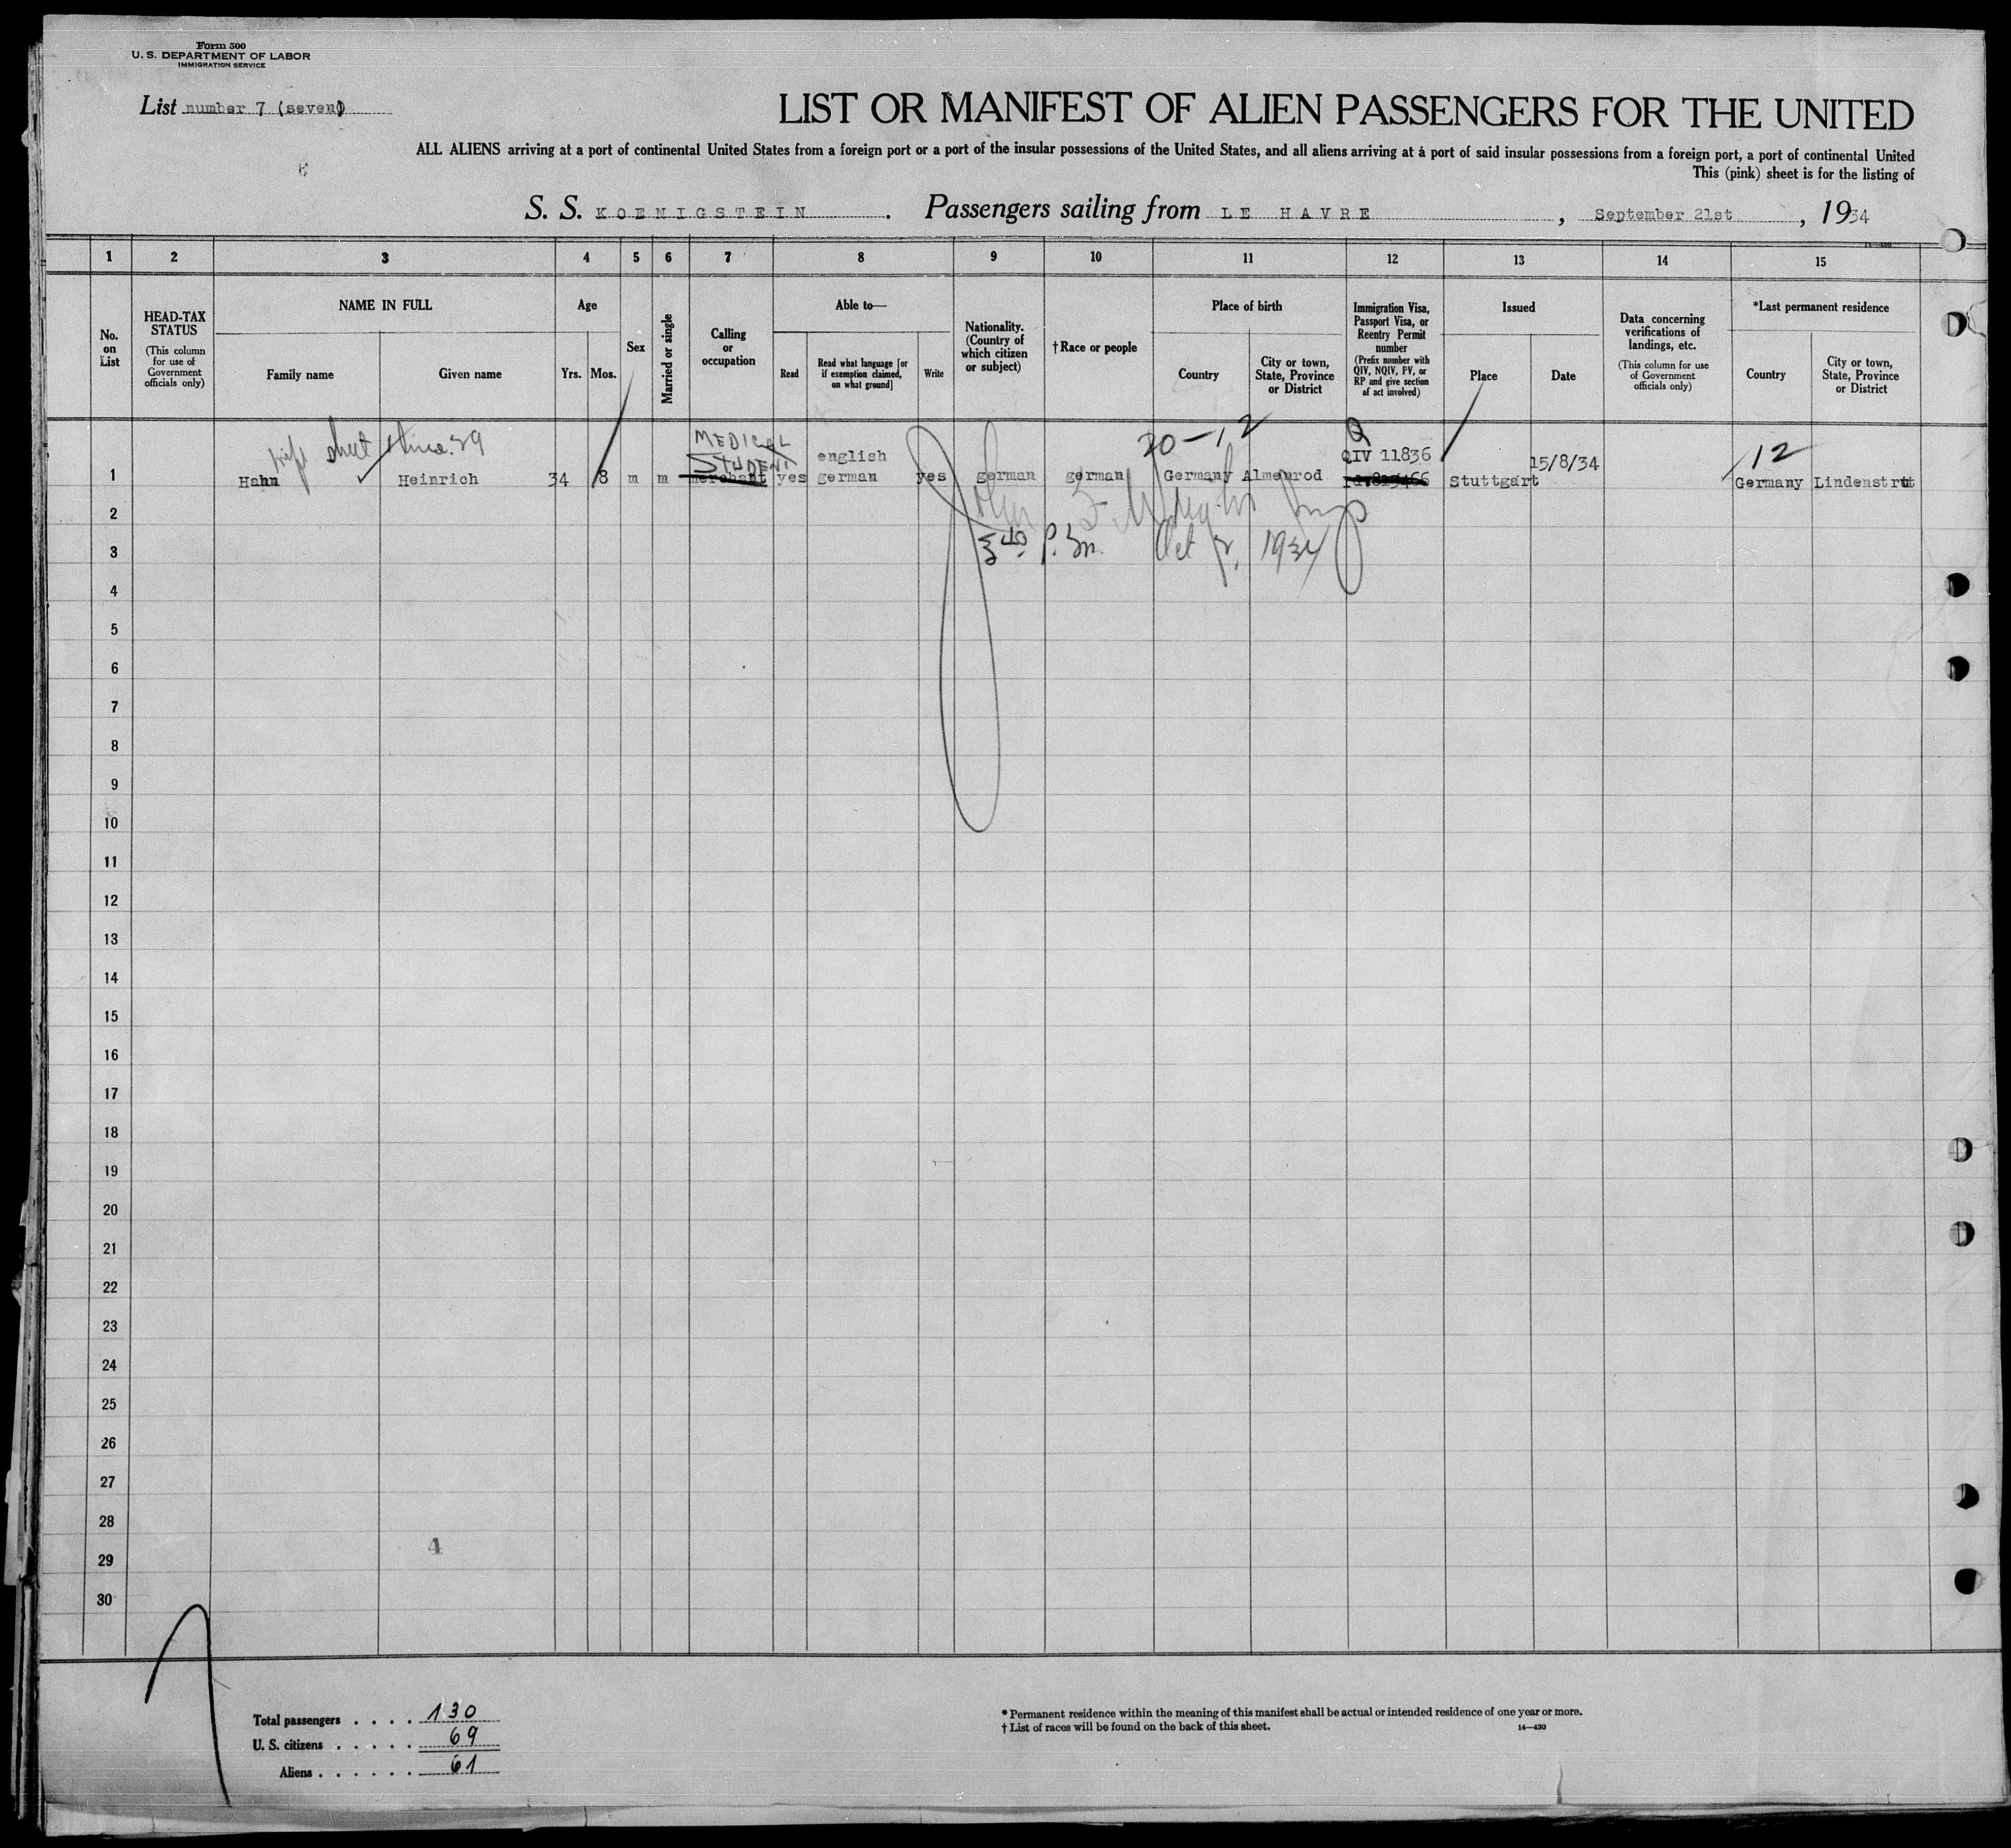 Form 500
U. S. DEPARTMENT OF LABOR
IMMIGRATION SERVICE
List number 7 (seven)
LIST OR MANIFEST OF ALIEN PASSENGERS FOR THE UNITED
ALL ALIENS arriving at a port of continental United States from a foreign port or a port of the insular possessions of the United States, and all aliens arriving at a port of said insular possessions from a foreign port, a port of continental United
This (pink) sheet is for the listing of
S. S. KOENIGSTEIN . Passengers sailing from LE HAVRE , September 21st , 1934
14—430
1 2 3 4 5 6 7 8 9 10 11 12 13 14 15
No. on List
HEAD-TAX STATUS
(This column for use of Government officials only)
NAME IN FULL
Family name Given name
Age
Yrs. Mos.
Sex
Married or single
Calling or occupation
Able to—
Read
Read what language [or if exemption claimed, on what ground]
Write
Nationality. (Country of which citizen or subject)
†Race or people
Place of birth
Country
City or town, State, Province or District
Immigration Visa, Passport Visa, or Reentry Permit number
(Prefix number with QIV, NQIV, PV, or RP and give section of act involved)
Issued
Place Date
Data concerning verifications of landings, etc.
(This column for use of Government officials only)
*Last permanent residence
Country
City or town, State, Province or District
sheet 29
MEDICAL
STUDENT
english
20-12
Q
QIV 11836
15/8/34
12
1 Hahn Heinrich 34 8 m m merchant yes german yes german german Germany Almenrod Stuttgart Germany Lindenstrut
2
3 5 40 P.m. Oct 2, 1934
4
5
6
7
8
9
10
11
12
13
14
15
16
17
18
19
20
21
22
23
24
25
26
27
28
4
29
30
Total passengers . . . . 130
U. S. citizens . . . . . 69
Aliens . . . . . . 61
* Permanent residence within the meaning of this manifest shall be actual or intended residence of one year or more.
† List of races will be found on the back of this sheet. 14—430